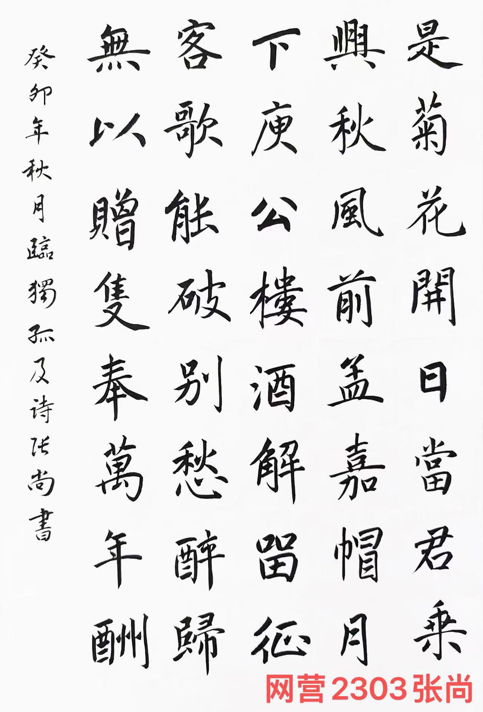 是菊花開日當君乘
興秋風前孟嘉帽月
下庾公樓酒解留征
客歌能破別愁醉歸
無以贈隻奉萬年酬
癸卯年秋月臨獨孤及诗张尚書
网营2303张尚